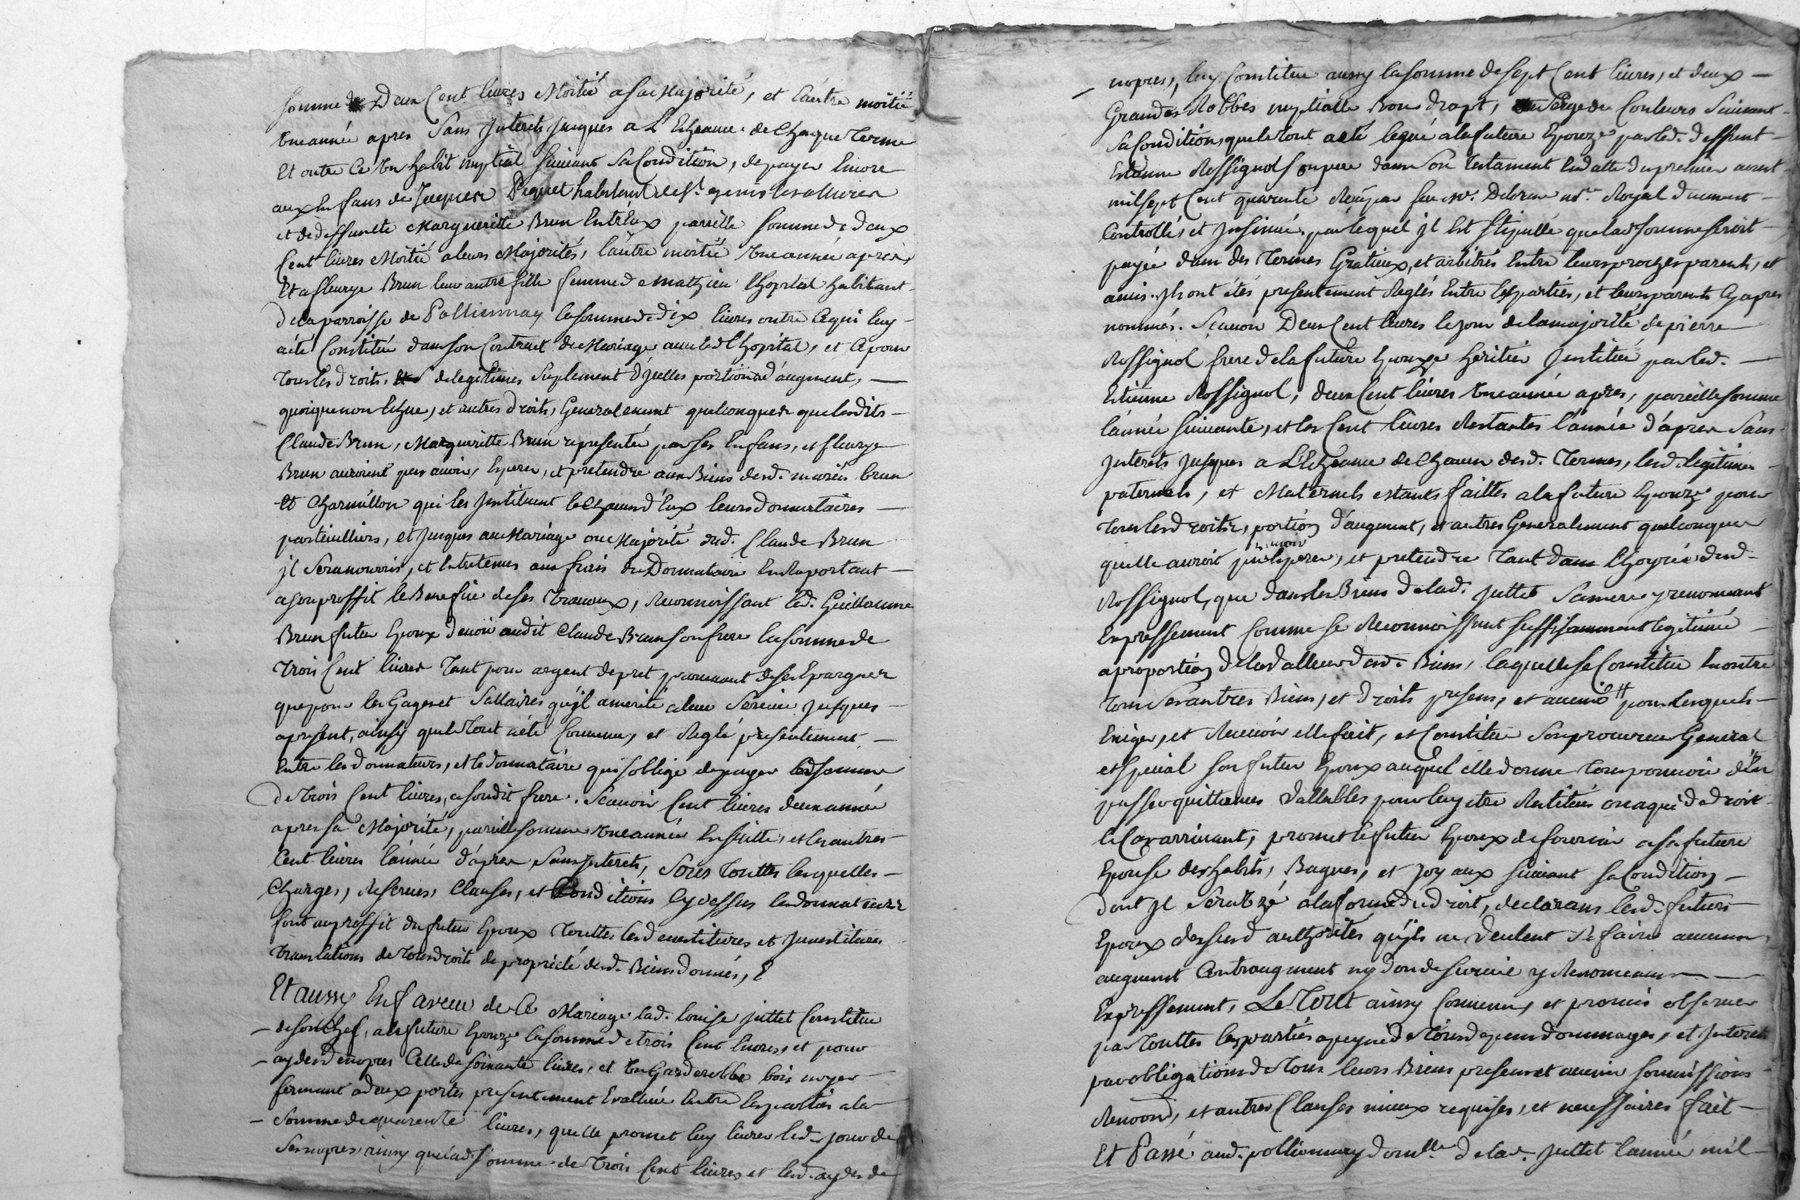 somme de Deux Cent livres Moitié a sa Majorité, et l'autre moitié
une année apres Sans Interets jusques a L'Echeance de Chaque Terme
Et outre Ce un habit nuptial suivant Sa Condition, de payer Encore
aux Enfans de Jacques Piquet habitant de St genis les ollieres
et de deffuncte Margueritte Brun Entr'Eux pareille somme de deux
Cent livres Moitié a leurs Majorités, l'autre moitié une année apres,
Et a fleurye Brun leur autre fille femme de Mathieu Lhopital habitant
de la parroisse de Pollionnay la somme de dix livres outre Ce qui luy
a eté Constitué dans son Contract de Mariage avec led. Lhopital, et Ce pour
Tous les droits, de legitimes Suplement d'jcelles portion d'augment,
quoique non Echue, et autres droits Generalement quelconques que lesdits
Claude Brun, Margueritte Brun representée par ses Enfans, et fleurye
Brun auroient peu avoir, Esperer, et pretendre aux Biens desd. mariés brun
Et Charmillon qui les Instituent Chacun d'Eux leurs donnataires
particulliers, et jusques au Mariage ou Majorité dud. Claude Brun
jl Sera nourri, et Entretenu aux frais du Donnataire En Raportant
a son proffit le Benefice de ses Travaux, Reconnoissant led. Guillaume
Brun futur Epoux devoir audit Claude Brun son frere la somme de
Trois Cent livres Tant pour argent de pret provenant de ses Epargnes
que pour les Gages et Sallaires qu'jl a merité a leur Service jusques
a present, ainsy que le Tout a eté Convenu, et Reglé presentement
Entre les donnateurs, et le donnataire qui s'oblige de payer lad somme
de Trois Cent livres, a son dit frere. Scavoir Cent livres deux année
apres sa Majorité, pareille somme une année En suitte, et les autres
Cent livres l'année d'apres Sans Interets, Sous Touttes lesquelles
Charges, reserves, Clauses, et Conditions Cy dessus les donnateurs
font au proffit du futur Epoux Touttes les devestitures et Investitures
Translations de Tous droits de proprieté desd. Biens donnés,
Et aussy En faveur de Ce Mariage lad. louise juttet Constitue
de son Chef, a la future Epouze la somme de trois Cent livres, et pour
aydes de nopces Celle de soixante livres, et un Garderobbe bois noyer
fermant a deux portes presentement Evallué Entre les parties a la
Somme de quarente livres, quelle promet luy livrer led. jour de
Ses nopces ainsy que lad. somme de Trois Cent livres et lesd. aydes de
nopces, luy Constitue aussy la somme de sept Cent livres, et deux
Grandes Robbes nuptialle Bon drapt, ou Serge de Couleurs Suivant
Sa Condition, que le tout a eté legué a la future Epouze par led. deffunt
Estienne Rossignol son pere dans son Testament En datte du premier aoust
mil sept Cent quarente Reçu par feu Me. Delorme nre. Royal duement
Controllé, et Insinué, par lequel jl Est stipullé que lad somme seroit
payée dans des Termes Gratieux, et arbitrés Entre leurs proches parents, et
amis. Jls ont étés presentement Reglés Entre les parties, et leurs parents Cy apres
nommés. Scavoir Deux Cent livres le jour de la majorité de pierre
Rossignol frere de la future Epouze heritier Institué par led.
Etienne Rossignol, deux Cent livres une année apres, pareille somme
l'année suivante, et les Cent livres Restantes l'année d'apres Sans
Interets jusques a L'Echeance de Chacun desd. Termes, lesd. legitimes
paternels, et Maternels estants faittes a la future Epouze pour
Tous les droits, portion d'augment, et autres Generalement quelconques
quelle auroit pu avoir Esperer, et pretendre Tant dans L'hoyrie dud.
Rossignol, que dans les Biens de lad. juttet Sa mere y renonceant
Expressement Comme se Reconnoissant suffisamment legitimée
a proportion de la Valleur desd. Biens, laquelle se Constitue Encontre
Tous Ses autres Biens, et droits presens, et avenir pour lesquels
Exiger, et Recevoir elle fait, et Constitue Son procureur General
et special son futur Epoux auquel elle donne Tout pouvoir d'En
passer quittances Vallables pour luy etre Restitués ou a qui de droit
le Cas arrivant, promet le futur Epoux de fournir a sa future
Epouse des habits, Bagues, et Joyaux suivant sa Condition
dont jl Sera Uzé a la forme du droit, declarans lesd. futurs
Epoux desd authorités qu'jls ne Veulent se faire aucun
augment Contraugment ny don de survie y Renonceans
Expressement, Le Tout ainsy Convenu, et promis observer
par Touttes les parties a peyne de Tous depens dommages, et Interets
par obligations de Tous leurs Biens presens et avenir soumissions
Renoond, et autres Clauses mieux requises, et necessaires fait
Et Passé aud. pollionnay domlle de lad. Juttet l'année mil